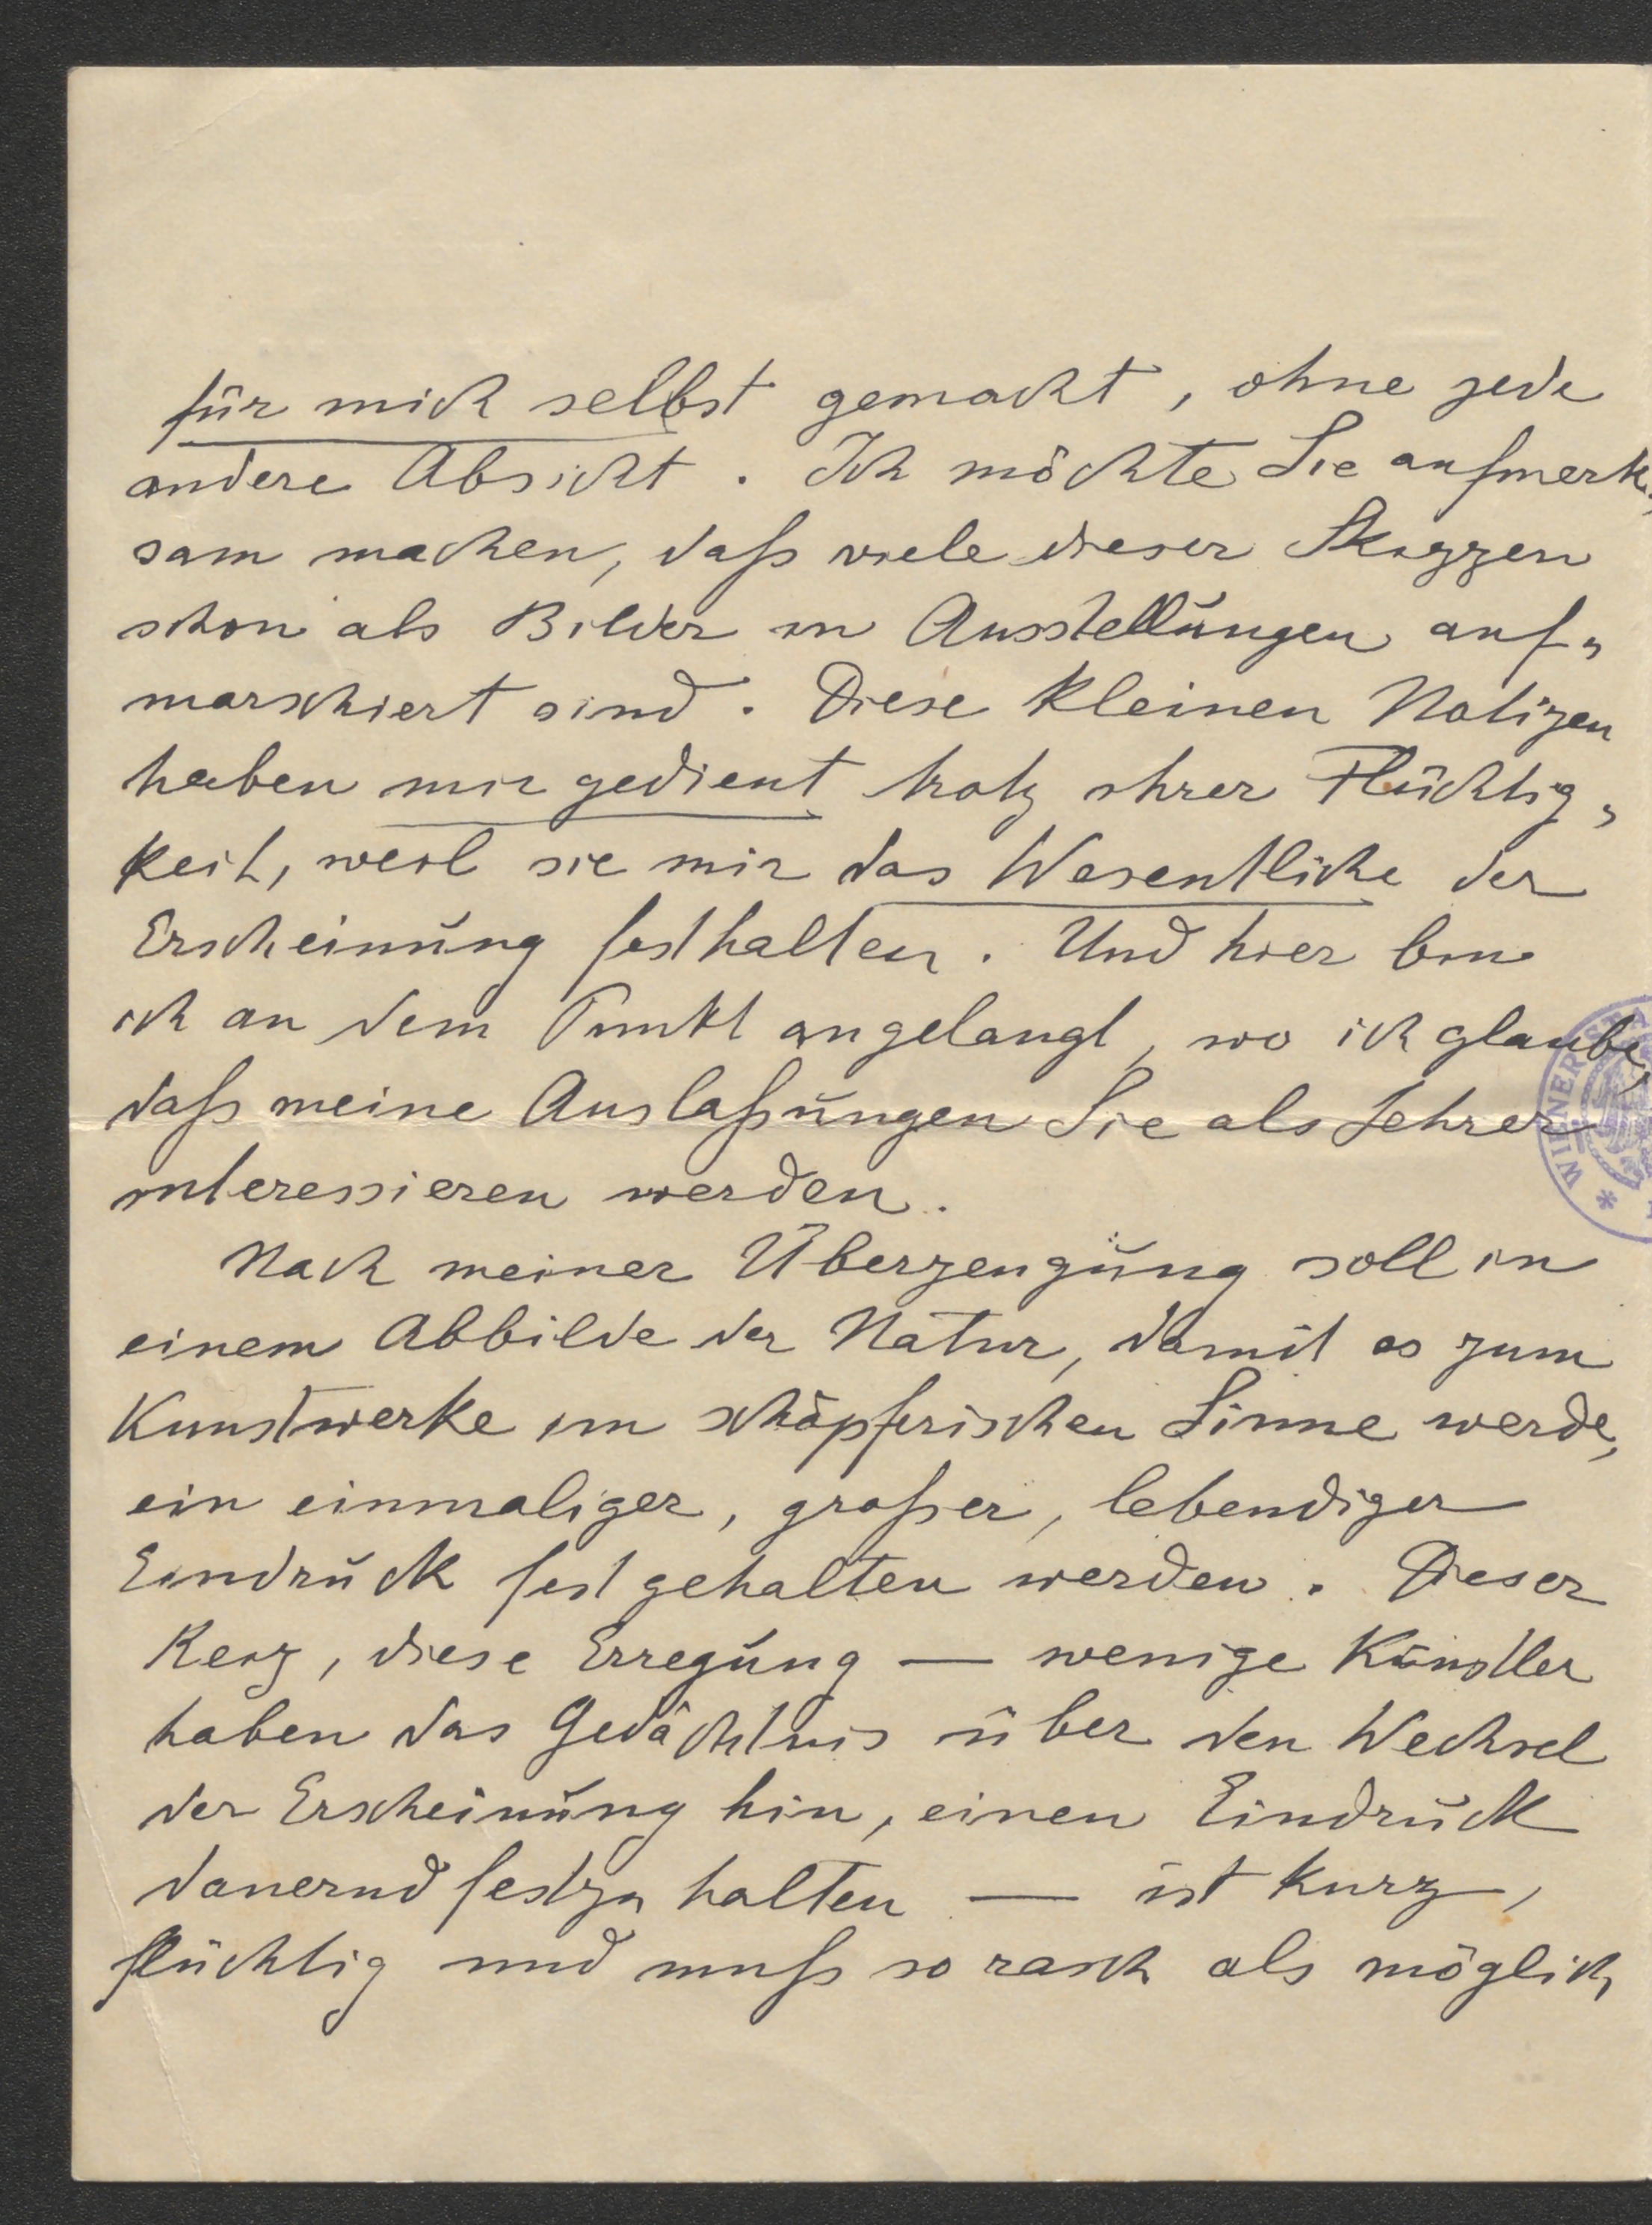 für mich selbst gemacht, ohne jede
andere Absicht. Ich möchte Sie aufmerk„
sam machen, daß viele dieser Skizzen
schon als Bilder in Ausstellungen auf„
marschiert sind. Diese kleinen Notizen
haben mir gedient trotz ihrer Flüchtig„
keit, weil sie mir das Wesentliche der
Erscheinung festhalten. Und hier bin
ich an dem Punkt angelangt, wo ich glaube,
daß meine Auslaßungen Sie als Lehrer
interessieren werden.
Nach meiner Überzeugung soll in
einem Abbilde der Natur, damit es zum
Kunstwerke im schöpferischen Sinne werde,
ein einmaliger, großer, lebendiger
Eindruck festgehalten werden. Dieser
Reiz, diese Erregung — wenige Künstler
haben das Gedächtnis über den Wechsel
der Erscheinung hin, einen Eindruck
dauernd festzuhalten — ist kurz,
flüchtig und muß so rasch als möglich
WIENER STA